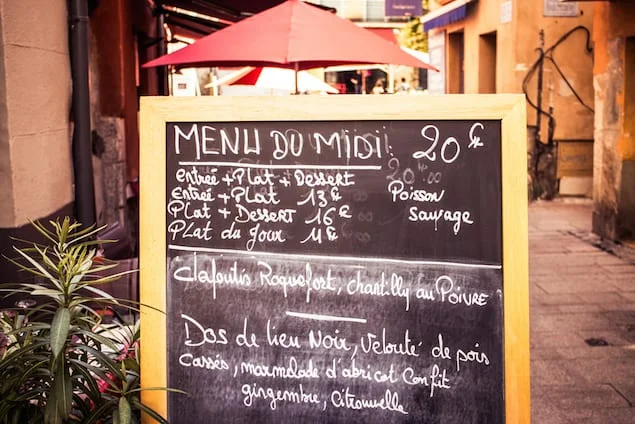 MENU DU MIDI 20€
Entrée + Plat + Dessert
Entrée + Plat 13€
Plat + Dessert 16€
Plat du jour 11€
Poisson
sauvage
Clafoutis Roquefort, chantilly au Poivre
Dos de lieu Noir, Velouté de pois
Cassés, marmelade d'abricot Confit
gingembre, Citronnelle